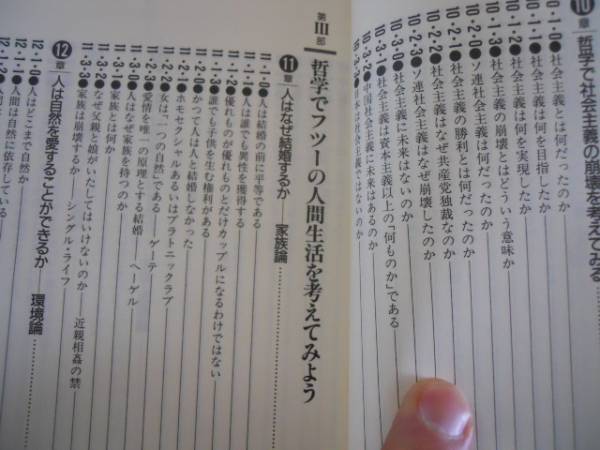 10章 哲学で社会主義の崩壊を考えてみる
10・1・0●社会主義とは何だったのか
10・1・1●社会主義は何を目指したか
10・1・2●社会主義は何を実現したか
10・2・0●社会主義の崩壊とはどういう意味か
10・2・1●ソ連社会主義は何だったのか
10・2・2●社会主義の勝利とは何だったのか
10・2・2●社会主義はなぜ共産党独裁なのか
10・2・3●ソ連社会主義はなぜ崩壊したのか
10・3・0●社会主義に未来はないのか
10・3・1●社会主義は資本主義以上の「何ものか」である
10・3・2●中国社会主義に未来はあるのか
10・3・3●日本は社会主義ではないのか
第III部 哲学でフツーの人間生活を考えてみよう
11章 人はなぜ結婚するか――家族論
11・1・0●人は結婚の前に平等である
11・1・1●人は誰でも異性を獲得する
11・1・2●優れものが優れものとだけカップルになるわけではない
11・1・3●誰でも子供を生む権利がある
11・2・0●かつて人は人と結婚しなかった
11・2・1●ホモセクシャルあるいはプラトニックラブ
11・2・2●女は「一つの自然」である――ゲーテ
11・2・3●愛情を唯一の原理とする結婚――ヘーゲル
11・3・0●人はなぜ家族を持つのか
11・3・1●家族とは何か
11・3・2●なぜ父親と娘がいたしてはいけないのか――近親相姦の禁
11・3・3●家族は崩壊するか――シングル・ライフ
12章 人は自然を愛することができるか――環境論
12・1・0●人はどこまで自然か
12・1・1●人間は自然に依存している
12・1・2●人間